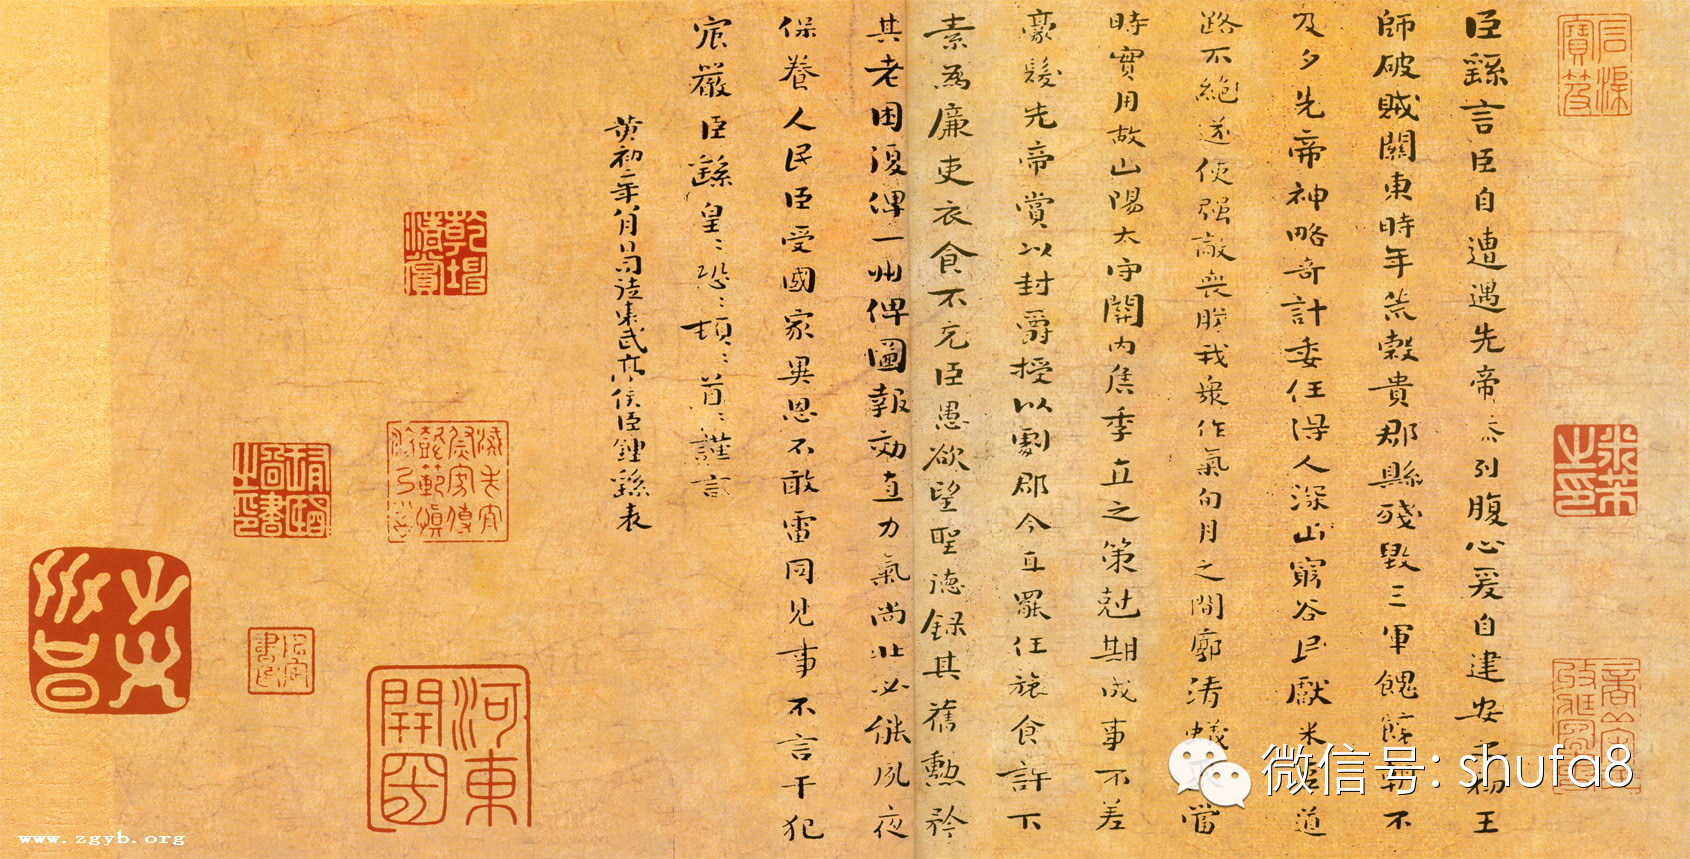 臣繇言臣自遭遇先帝忝列腹心爰自建安之初王
師破賊關東時年荒穀貴郡縣殘毀三軍餽饟朝不
及夕先帝神略奇計委任得人深山窮谷民獻米豆道
路不絕遂使强敵喪膽我衆作氣旬月之間廓清蟻聚當
時實用故山陽太守關內侯季直之策剋期成事不差
豪髮先帝賞以封爵授以劇郡今直罷任旅食許下
素為廉吏衣食不充臣愚欲望聖德錄其舊勳矜
其老困復俾一州俾圖報效直力氣尚壯必能夙夜
保養人民臣受國家異恩不敢雷同見事不言干犯
宸嚴臣繇皇〻恐〻頓〻首〻謹言
黃初二年八月日司徒東武亭侯臣鍾繇表
乾坤清賞
河東開國
米芾之印
微信号: shufa8
www.zgyb.org